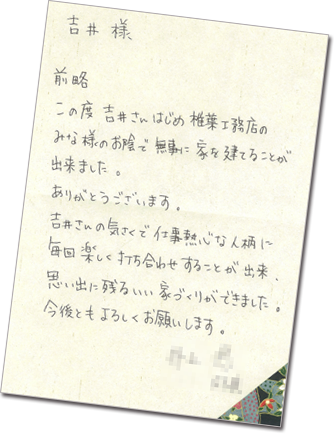 吉井 様
前略
この度 吉井さんはじめ 椎葉工務店の
みな様のお陰で 無事に 家を建てることが
出来ました。
ありがとうございます。
吉井さんの気さくで 仕事熱心な人柄に
毎回 楽しく 打ち合わせすることが出来、
思い出に残るいい 家づくりができました。
今後ともよろしくお願いします。